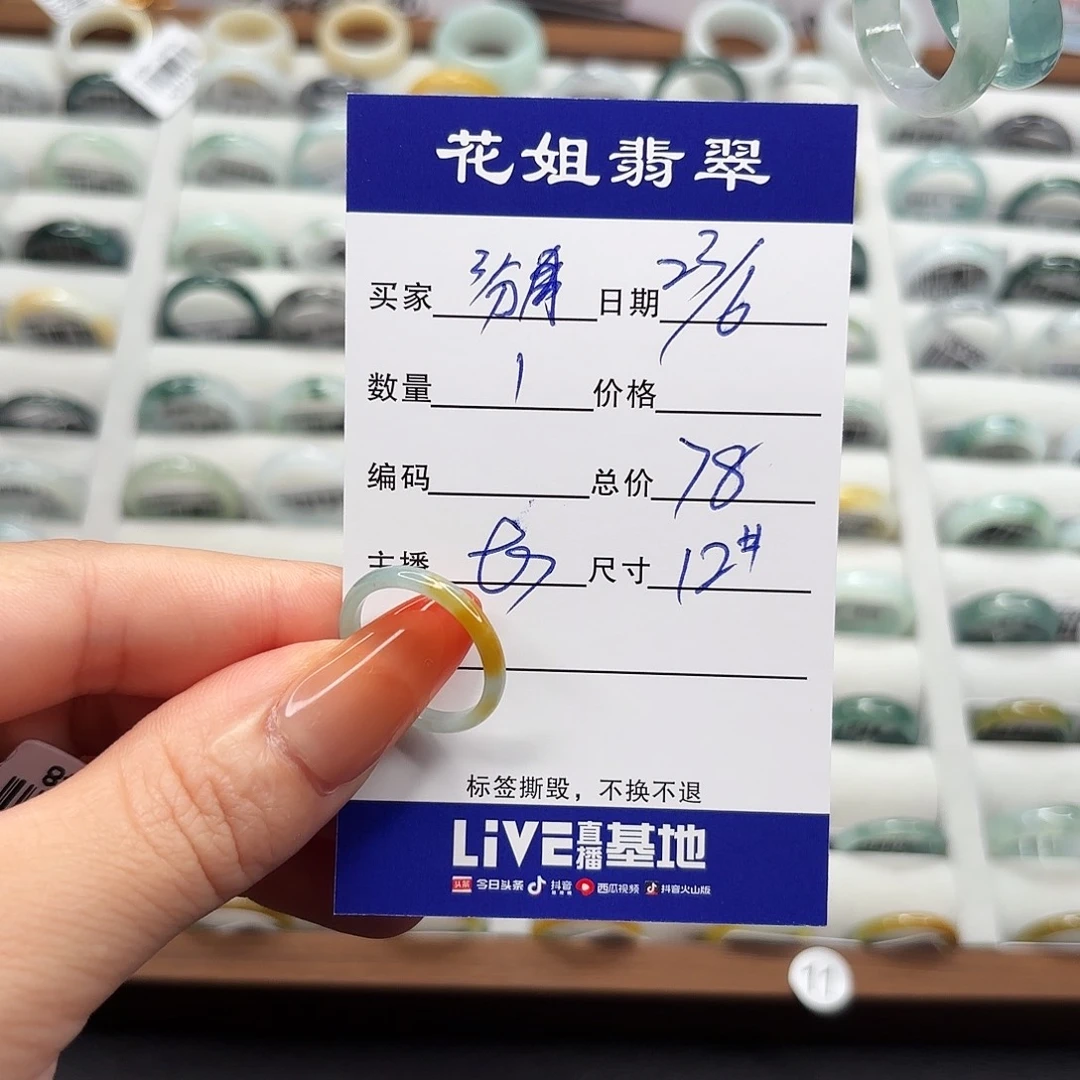 花姐翡翠
买家 日期 23/6
数量 1 价格
编码 总价 78
主播 尺寸 12#
标签撕毁，不换不退
LiVE直播基地
头条 今日头条 抖音 西瓜视频 抖音火山版
11
8